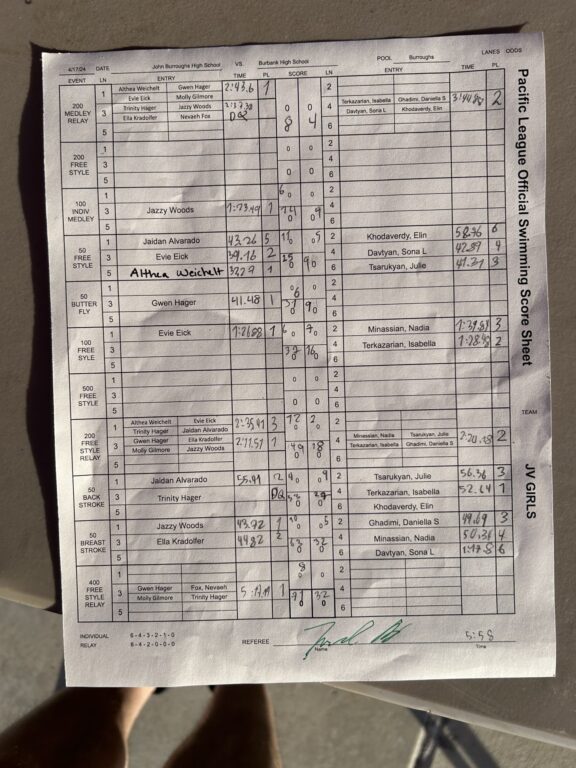 4/17/24 DATE John Burroughs High School VS. Burbank High School POOL Burroughs LANES ODDS
EVENT LN ENTRY TIME PL SCORE LN ENTRY TIME PL
200 MEDLEY RELAY
1 Althea Weichelt Gwen Hager 2:43.6 1
Evie Eick Molly Gilmore
3 Trinity Hager Jazzy Woods
Ella Kradolfer Nevaeh Fox DQ
5
0 0
8 4
2
4 Terkazarian, Isabella Ghadimi, Daniella S 2
Davtyan, Sona L Khodaverdy, Elin
6
200 FREE STYLE
1 0 0 2
3 4
5 0 0 6
100 INDIV MEDLEY
1 6 0 2
3 Jazzy Woods 1:23.49 1 4
5 6
50 FREE STYLE
1 Jaidan Alvarado 43.26 5 2 Khodaverdy, Elin 58.96 6
3 Evie Eick 39.16 2 4 Davtyan, Sona L 4
5 Althea Weichelt 1 6 Tsarukyan, Julie 41.21 3
50 BUTTER FLY
1 2
3 Gwen Hager 41.48 1 4
5 6
100 FREE STYLE
1 Evie Eick 1 2 Minassian, Nadia 3
3 4 Terkazarian, Isabella 2
5 6
500 FREE STYLE
1 0 0 2
3 4
5 0 0 6
200 FREE STYLE RELAY
1 Althea Weichelt Evie Eick 2:35.41 3 2
Trinity Hager Jaidan Alvarado
3 Gwen Hager Ella Kradolfer 2:11.51 1 4 Minassian, Nadia Tsarukyan, Julie 2
Molly Gilmore Jazzy Woods Terkazarian, Isabella Ghadimi, Daniella S
5 6
50 BACK STROKE
1 Jaidan Alvarado 55.91 2 2 Tsarukyan, Julie 56.36 3
3 Trinity Hager DQ 4 Terkazarian, Isabella 52.64 1
5 6 Khodaverdy, Elin
50 BREAST STROKE
1 Jazzy Woods 43.92 1 2 Ghadimi, Daniella S 49.69 3
3 Ella Kradolfer 44.82 2 63 32 4 Minassian, Nadia 50.36 4
5 6 Davtyan, Sona L 6
400 FREE STYLE RELAY
1 8 0 2
3 Gwen Hager Fox, Nevaeh 1 71 32 4
Molly Gilmore Trinity Hager
5 6
INDIVIDUAL 6-4-3-2-1-0
RELAY 8-4-2-0-0-0
REFEREE
Name
5:58
Time
Pacific League Official Swimming Score Sheet
TEAM
JV GIRLS